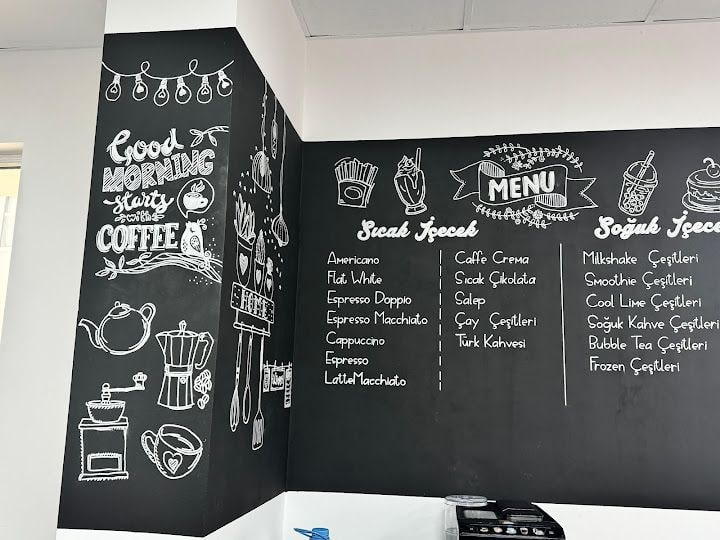 Good
MORNING
starts
with
COFFEE
HOME
MENU
Sıcak İçecek
Americano
Flat White
Espresso Doppio
Espresso Macchiato
Cappuccino
Espresso
LatteMacchiato
Caffe Crema
Sıcak Çikolata
Salep
Çay Çeşitleri
Türk Kahvesi
Soğuk İçece
Milkshake Çeşitleri
Smoothie Çeşitleri
Cool Lime Çeşitleri
Soğuk Kahve Çeşitleri
Bubble Tea Çeşitleri
Frozen Çeşitleri